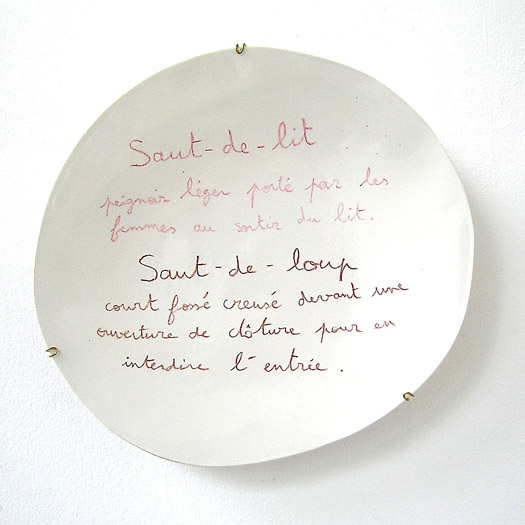 Saut-de-lit
peignoir léger porté par les
femmes au sortir du lit.
Saut-de-loup
court fossé creusé devant une
ouverture de clôture pour en
interdire l'entrée.